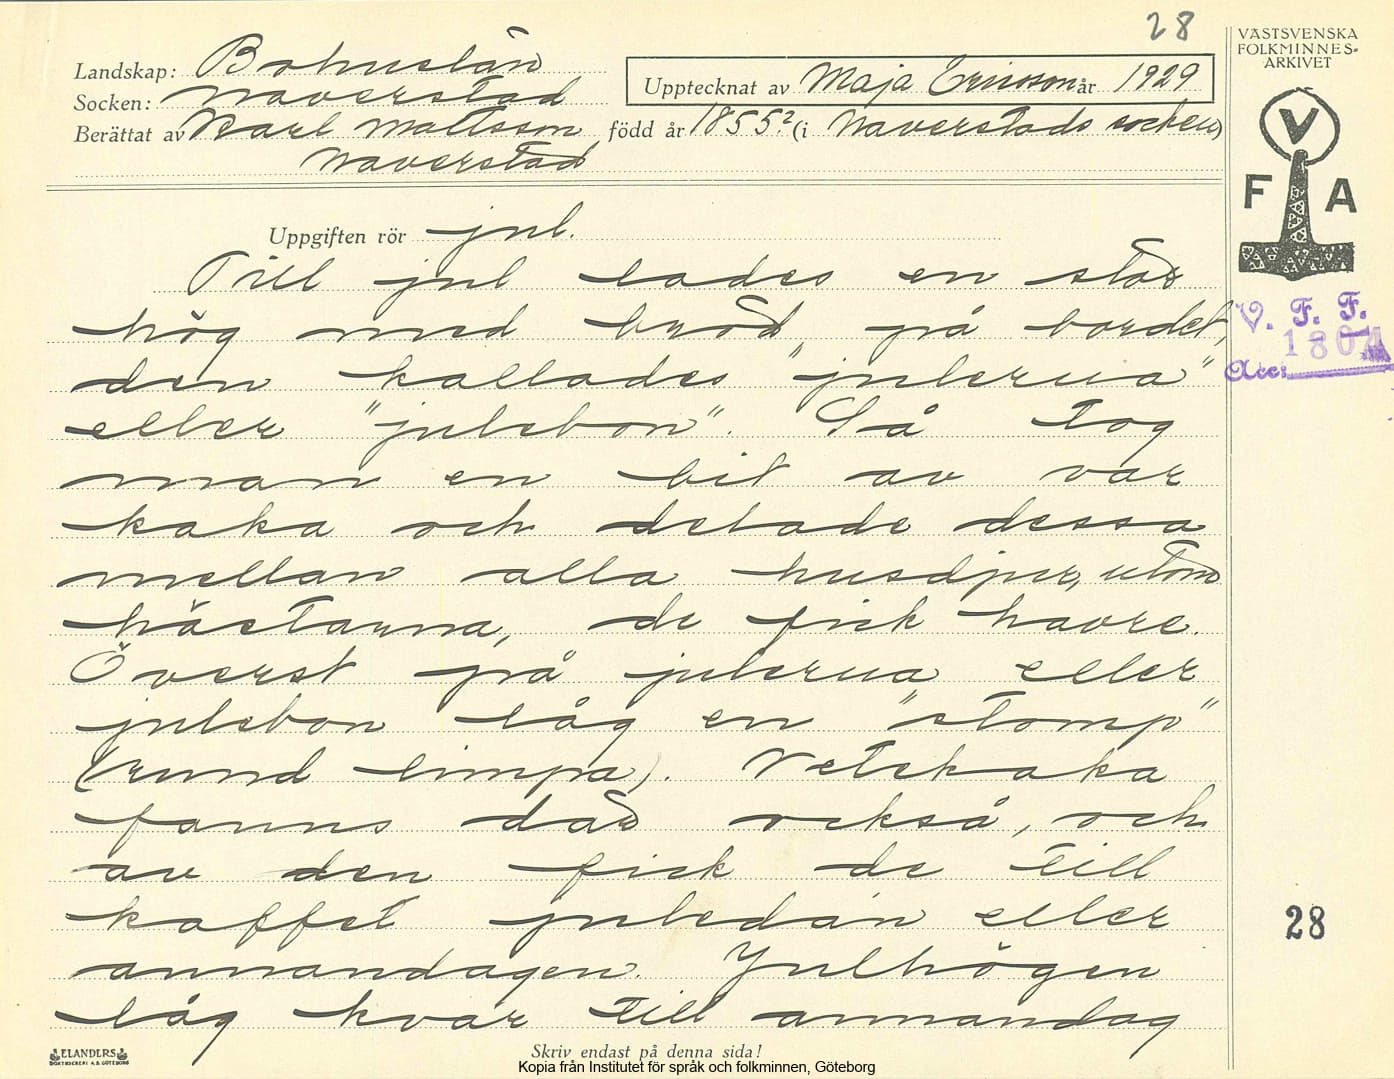 28
VÄSTSVENSKA
FOLKMINNES-
ARKIVET
Landskap: Bohuslän
Socken: Naverstad
Upptecknat av Maja Ericsson år 1929
Berättat av Karl Mattsson född år 1855? (i Naverstads socken)
Naverstad
V
F A
Uppgiften rör jul.
Till jul lades en stor
hög med bröd på bordet,
den kallades "julerua"
eller "julebon". Så tog
man en bit av var
kaka och delade dessa
mellan alla husdjur, utom
hästarna, de fick havre.
Överst på julerua eller
julebon låg en "stomp"
(rund limpa). Vetekaka
fanns där också, och
av den fick de till
kaffet juledan eller
annandagen. Julhögen
låg kvar till annandag
V. F. F.
1804
Acc:
28
ELANDERS
BOKTRYCKERI A.B. GÖTEBORG
Skriv endast på denna sida!
Kopia från Institutet för språk och folkminnen, Göteborg